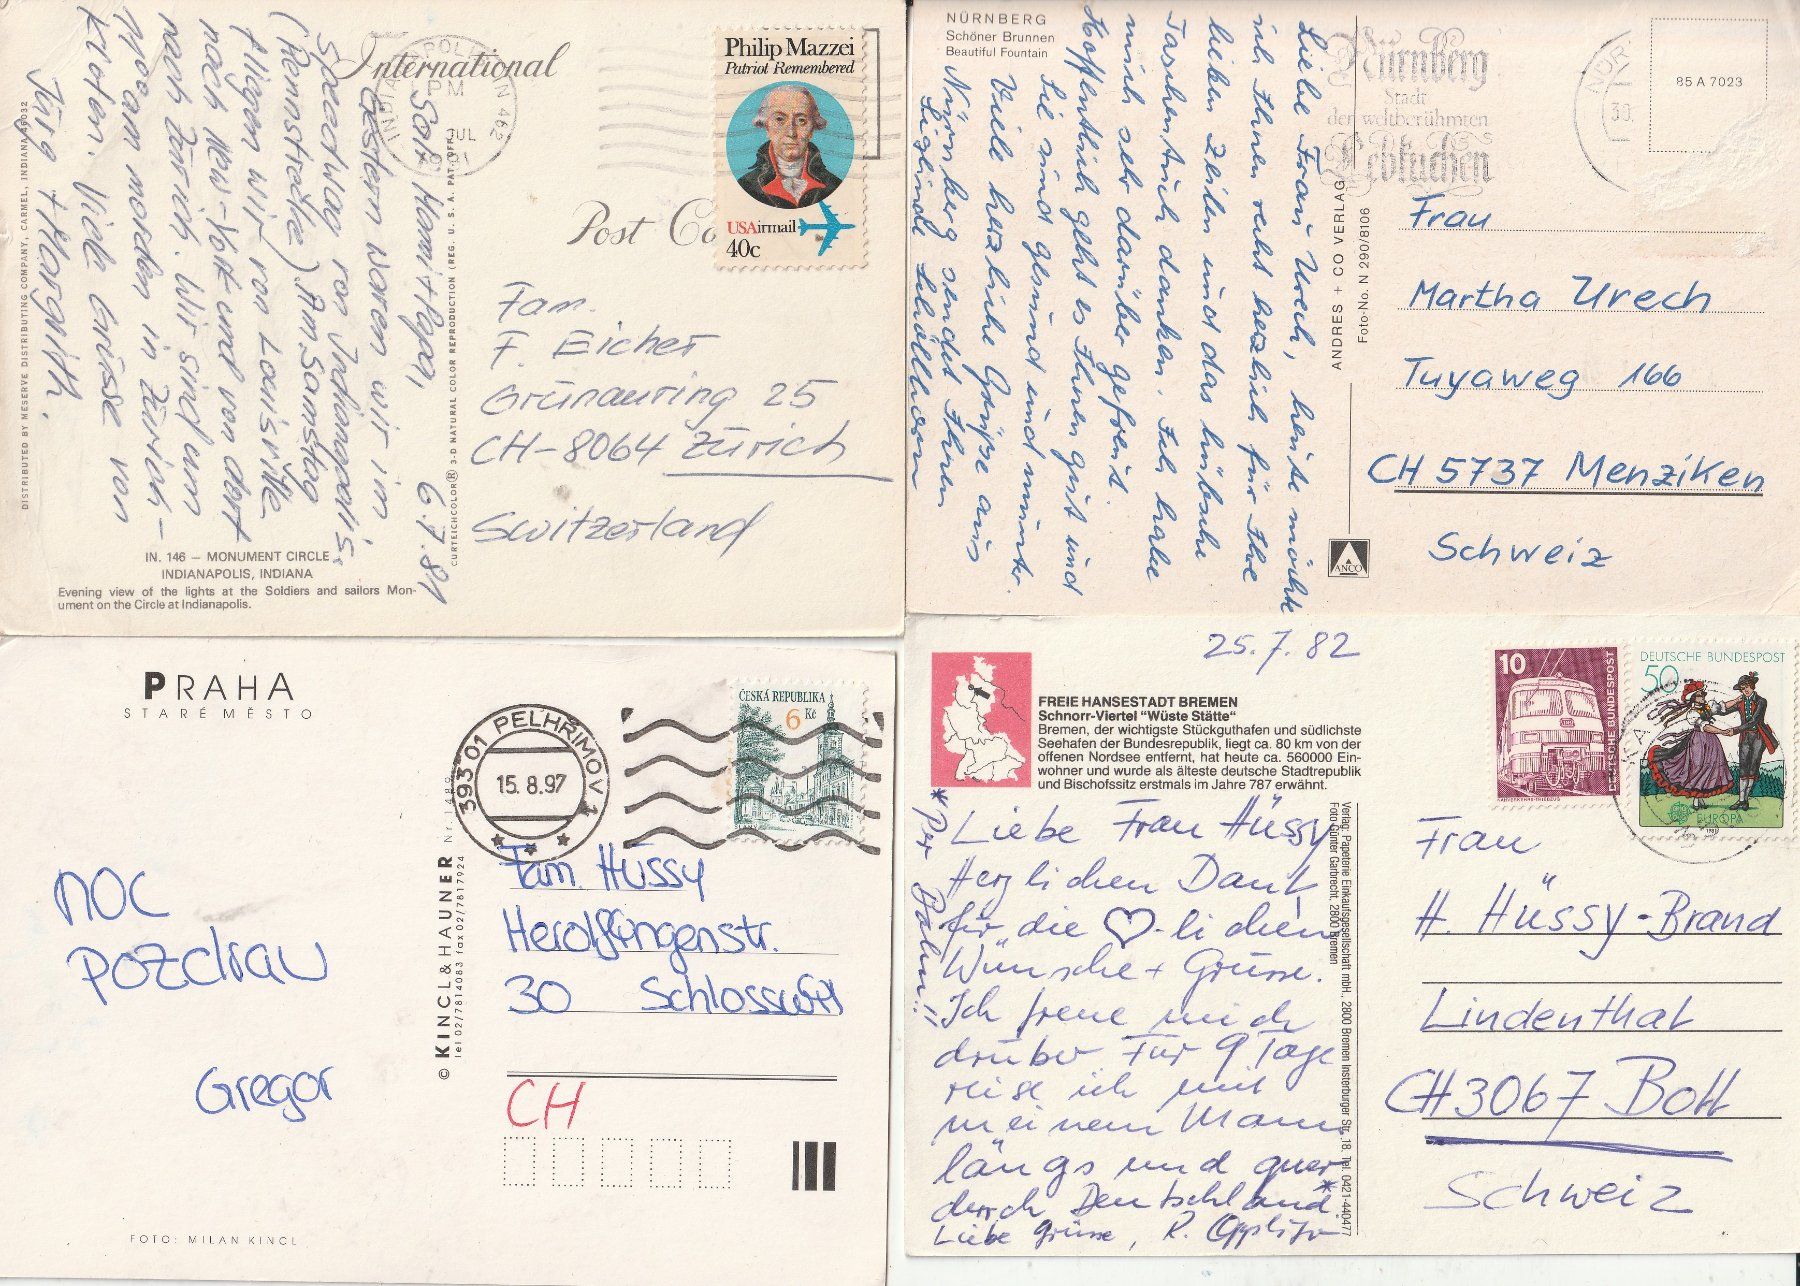 International
Post Ca
INDIANAPOLIS, IN 462
PM
JUL
1981
Philip Mazzei
Patriot Remembered
USAirmail
40c
Sali Mami + Papa, 6.7.81
Gestern waren wir im
Speedway von Indianapolis.
(Rennstrecke). Am Samstag
fliegen wir von Louisville
nach New-York und von dort
nach Zürich. Wir sind um
morgen in Zürich-
Kloten. Viele Grüsse von
Jürg + Margrith.
Fam.
F. Eicher
Grünauring 25
CH-8064 Zürich
Switzerland
DISTRIBUTED BY MESERVE DISTRIBUTING COMPANY, CARMEL, INDIANA 46032
CURTEICHCOLOR® 3-D NATURAL COLOR REPRODUCTION (REG. U. S. A. PAT. OFF.
IN. 146 — MONUMENT CIRCLE
INDIANAPOLIS, INDIANA
Evening view of the lights at the Soldiers and sailors Mon-
ument on the Circle at Indianapolis.
NÜRNBERG
Schöner Brunnen
Beautiful Fountain
Nürnberg
Stadt
der weltberühmten
Lebkuchen
85 A 7023
Liebe Frau Urech, heute möchte
ich Ihnen recht herzlich für Ihre
lieben Zeilen und das hübsche
Taschentuch danken. Ich habe
mich sehr darüber gefreut.
Hoffentlich geht es Ihnen gut und
Sie sind gesund und munter.
Viele herzliche Grüße aus
Nürnberg sendet Ihnen
ANDRES + CO VERLAG
Foto-No. N 290/8106
ANCO
Frau
Martha Urech
Tuyaweg 166
CH 5737 Menziken
Schweiz
PRAHA
STARÉ MĚSTO
393 01 PELHŘIMOV 1
15.8.97
ČESKÁ REPUBLIKA
6 Kč
moc
pozdrav
Gregor
© KINCL & HAUNER Nr. 1489
tel 02/7814083 fax 02/7817924
Fam. Hüssy
Herolfingenstr.
30 Schlosswil
CH
FOTO: MILAN KINCL
25.7.82
FREIE HANSESTADT BREMEN
Schnorr-Viertel "Wüste Stätte"
Bremen, der wichtigste Stückguthafen und südlichste
Seehafen der Bundesrepublik, liegt ca. 80 km von der
offenen Nordsee entfernt, hat heute ca. 560000 Ein-
wohner und wurde als älteste deutsche Stadtrepublik
und Bischofssitz erstmals im Jahre 787 erwähnt.
10
DEUTSCHE BUNDESPOST
DEUTSCHE BUNDESPOST
50
EUROPA
Liebe Frau Hüssy
Herzlichen Dank
für die ♡-lichen
Wünsche + Grüsse.
Ich freue mich
drüber. Für 9 Tage
reise ich mit
meinem Mann
längs und quer
durch Deutschland*
Liebe Grüsse, R. Oppliger
*Per Bahn!!
Verlag: Papeterie Einkaufsgesellschaft mbH., 2800 Bremen Insterburger Str. 18, Tel. 0421-440477
Foto Günter Garbrecht, 2800 Bremen
Frau
H. Hüssy-Brand
Lindenthal
CH 3067 Boll
Schweiz